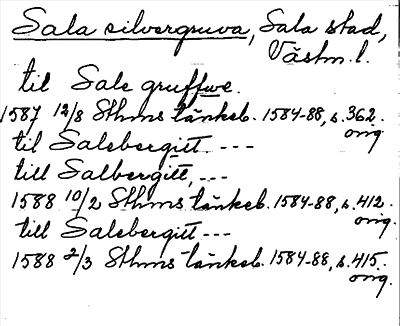 Sala silvergruva, Sala stad,
Västm. l.
til Sale gruffwe.
1587 12/8 Sthms tänkeb. 1584-88, s. 362.
orig.
til Salebergitt. ---
till Salbergitt, ---
1588 10/2 Sthms tänkeb. 1584-88, s. 412.
orig.
till Salebergitt ---
1588 2/3 Sthms tänkeb. 1584-88, s. 415.
orig.